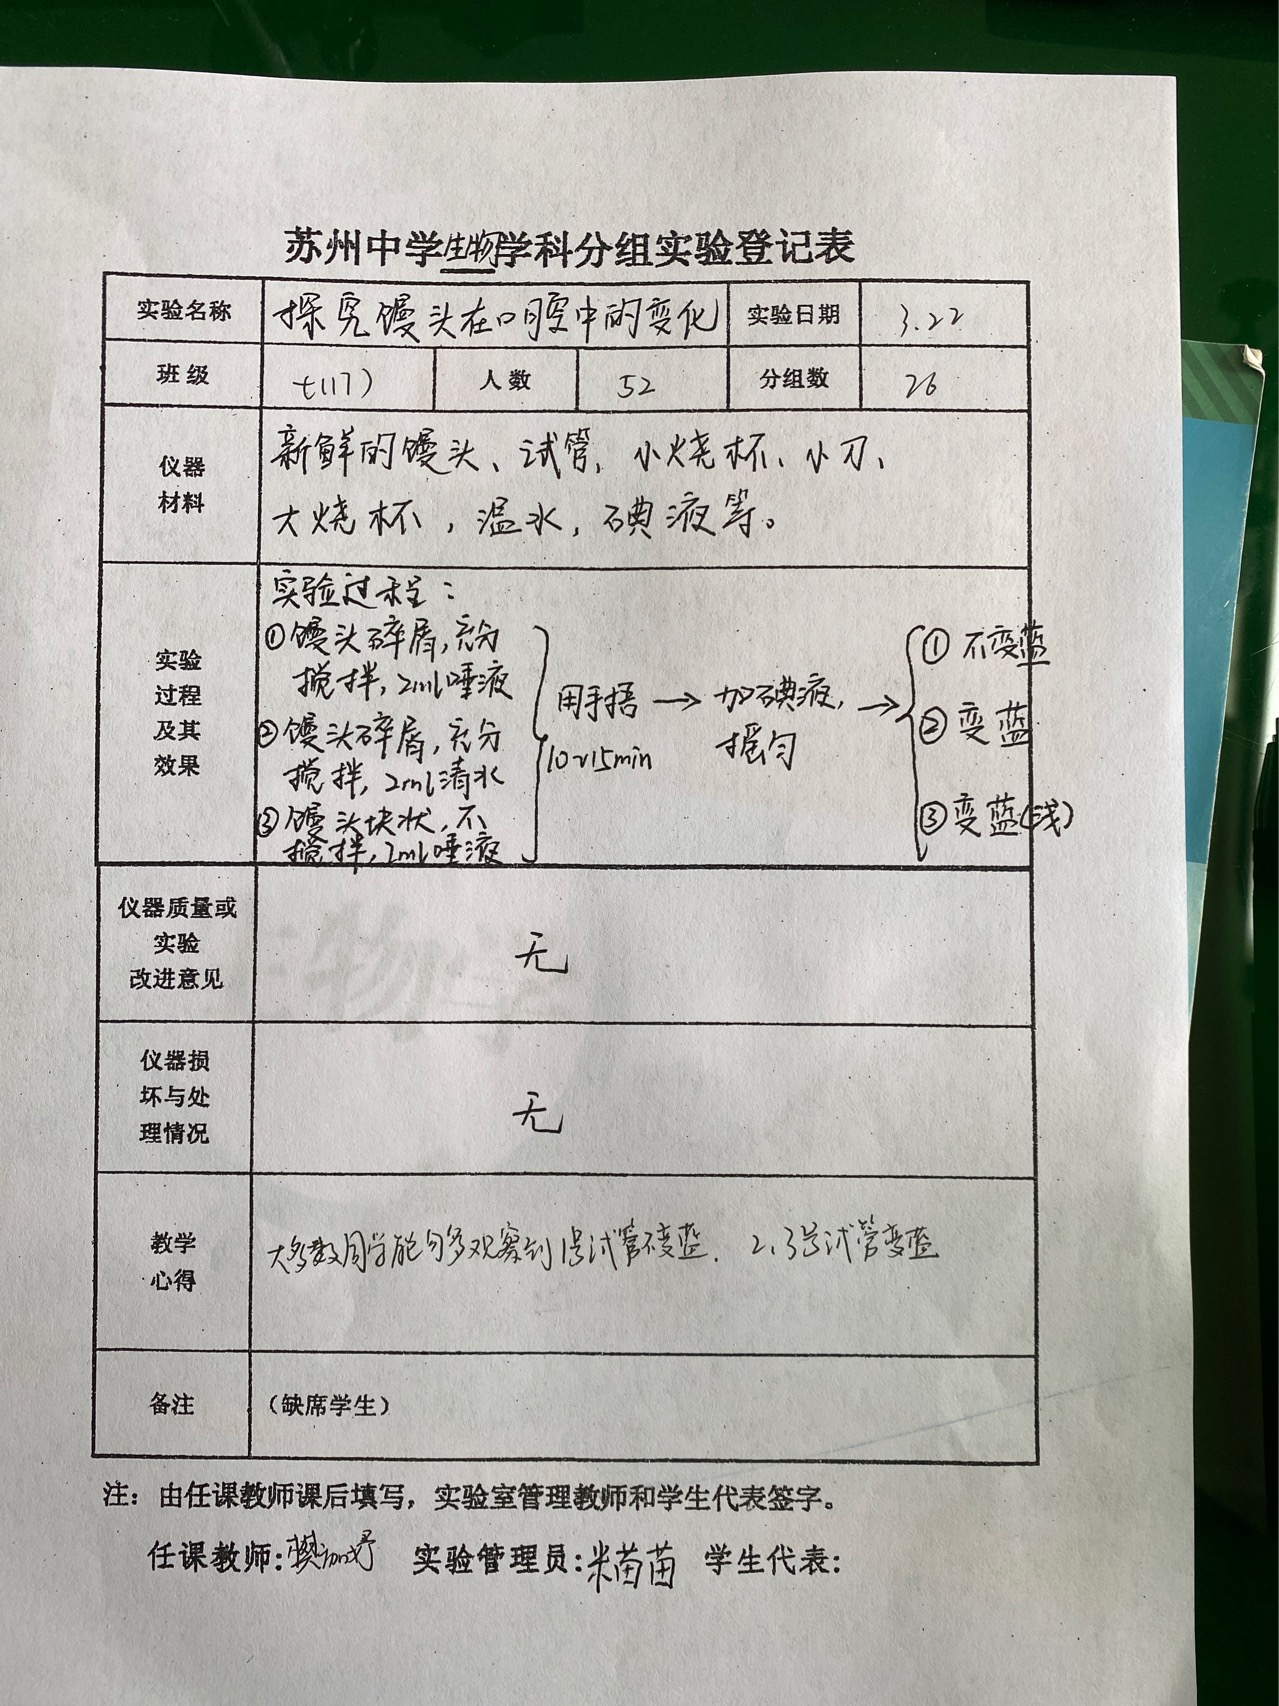 苏州中学生物学科分组实验登记表
实验名称 探究馒头在口腔中的变化 实验日期 3.22
班级 七(17) 人数 52 分组数 26
仪器
材料
新鲜的馒头、试管、小烧杯、小刀、
大烧杯，温水，碘液等。
实验
过程
及其
效果
实验过程：
①馒头碎屑，充分
搅拌，2ml唾液
②馒头碎屑，充分
搅拌，2ml清水
③馒头块状，不
搅拌，2ml唾液
用手捂
10~15min
→ 加碘液，
摇匀
→
① 不变蓝
② 变蓝
③ 变蓝(浅)
仪器质量或
实验
改进意见
无
仪器损
坏与处
理情况
无
教学
心得
大多数同学能够观察到1号试管不变蓝，2、3号试管变蓝
备注 （缺席学生）
注：由任课教师课后填写，实验室管理教师和学生代表签字。
任课教师:樊加妤 实验管理员:米苗苗 学生代表: